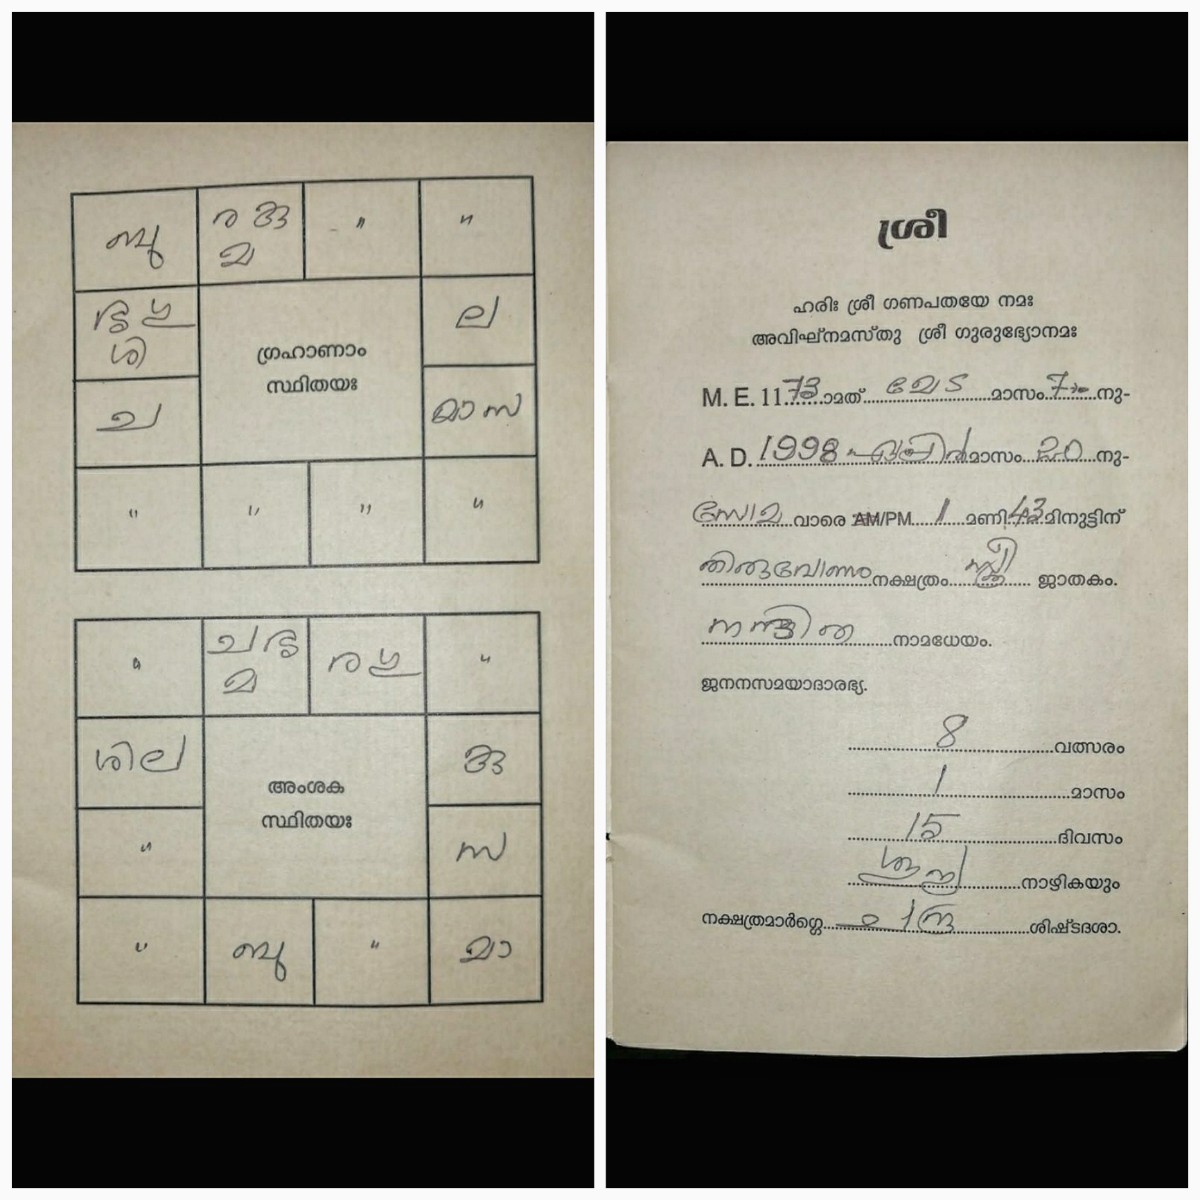 ബു
ര കു
മ
"
"
ഗു ശു
ശി
ല
ച
മാ സ
ഗ്രഹാണാം
സ്ഥിതയഃ
"
"
"
"
"
ച ഗു
മ
ര ശു
"
ശി ല
കു
"
സ
അംശക
സ്ഥിതയഃ
"
ബു
"
മാ
ശ്രീ
ഹരിഃ ശ്രീ ഗണപതയേ നമഃ
അവിഘ്നമസ്തു ശ്രീ ഗുരുഭ്യോനമഃ
M. E. 1173ാമത് മേട മാസം 7-ം നു-
A. D. 1998 ഏപ്രിൽ മാസം 20 നു-
സോമ വാരെ AM/PM 1 മണി 43 മിനുട്ടിന്
തിരുവോണം നക്ഷത്രം സ്ത്രീ ജാതകം.
നാമധേയം.
ജനനസമയാദാരഭ്യ.
8 വത്സരം
1 മാസം
15 ദിവസം
നാഴികയും
നക്ഷത്രമാർഗ്ഗെ ചന്ദ്ര ശിഷ്ടദശാ.